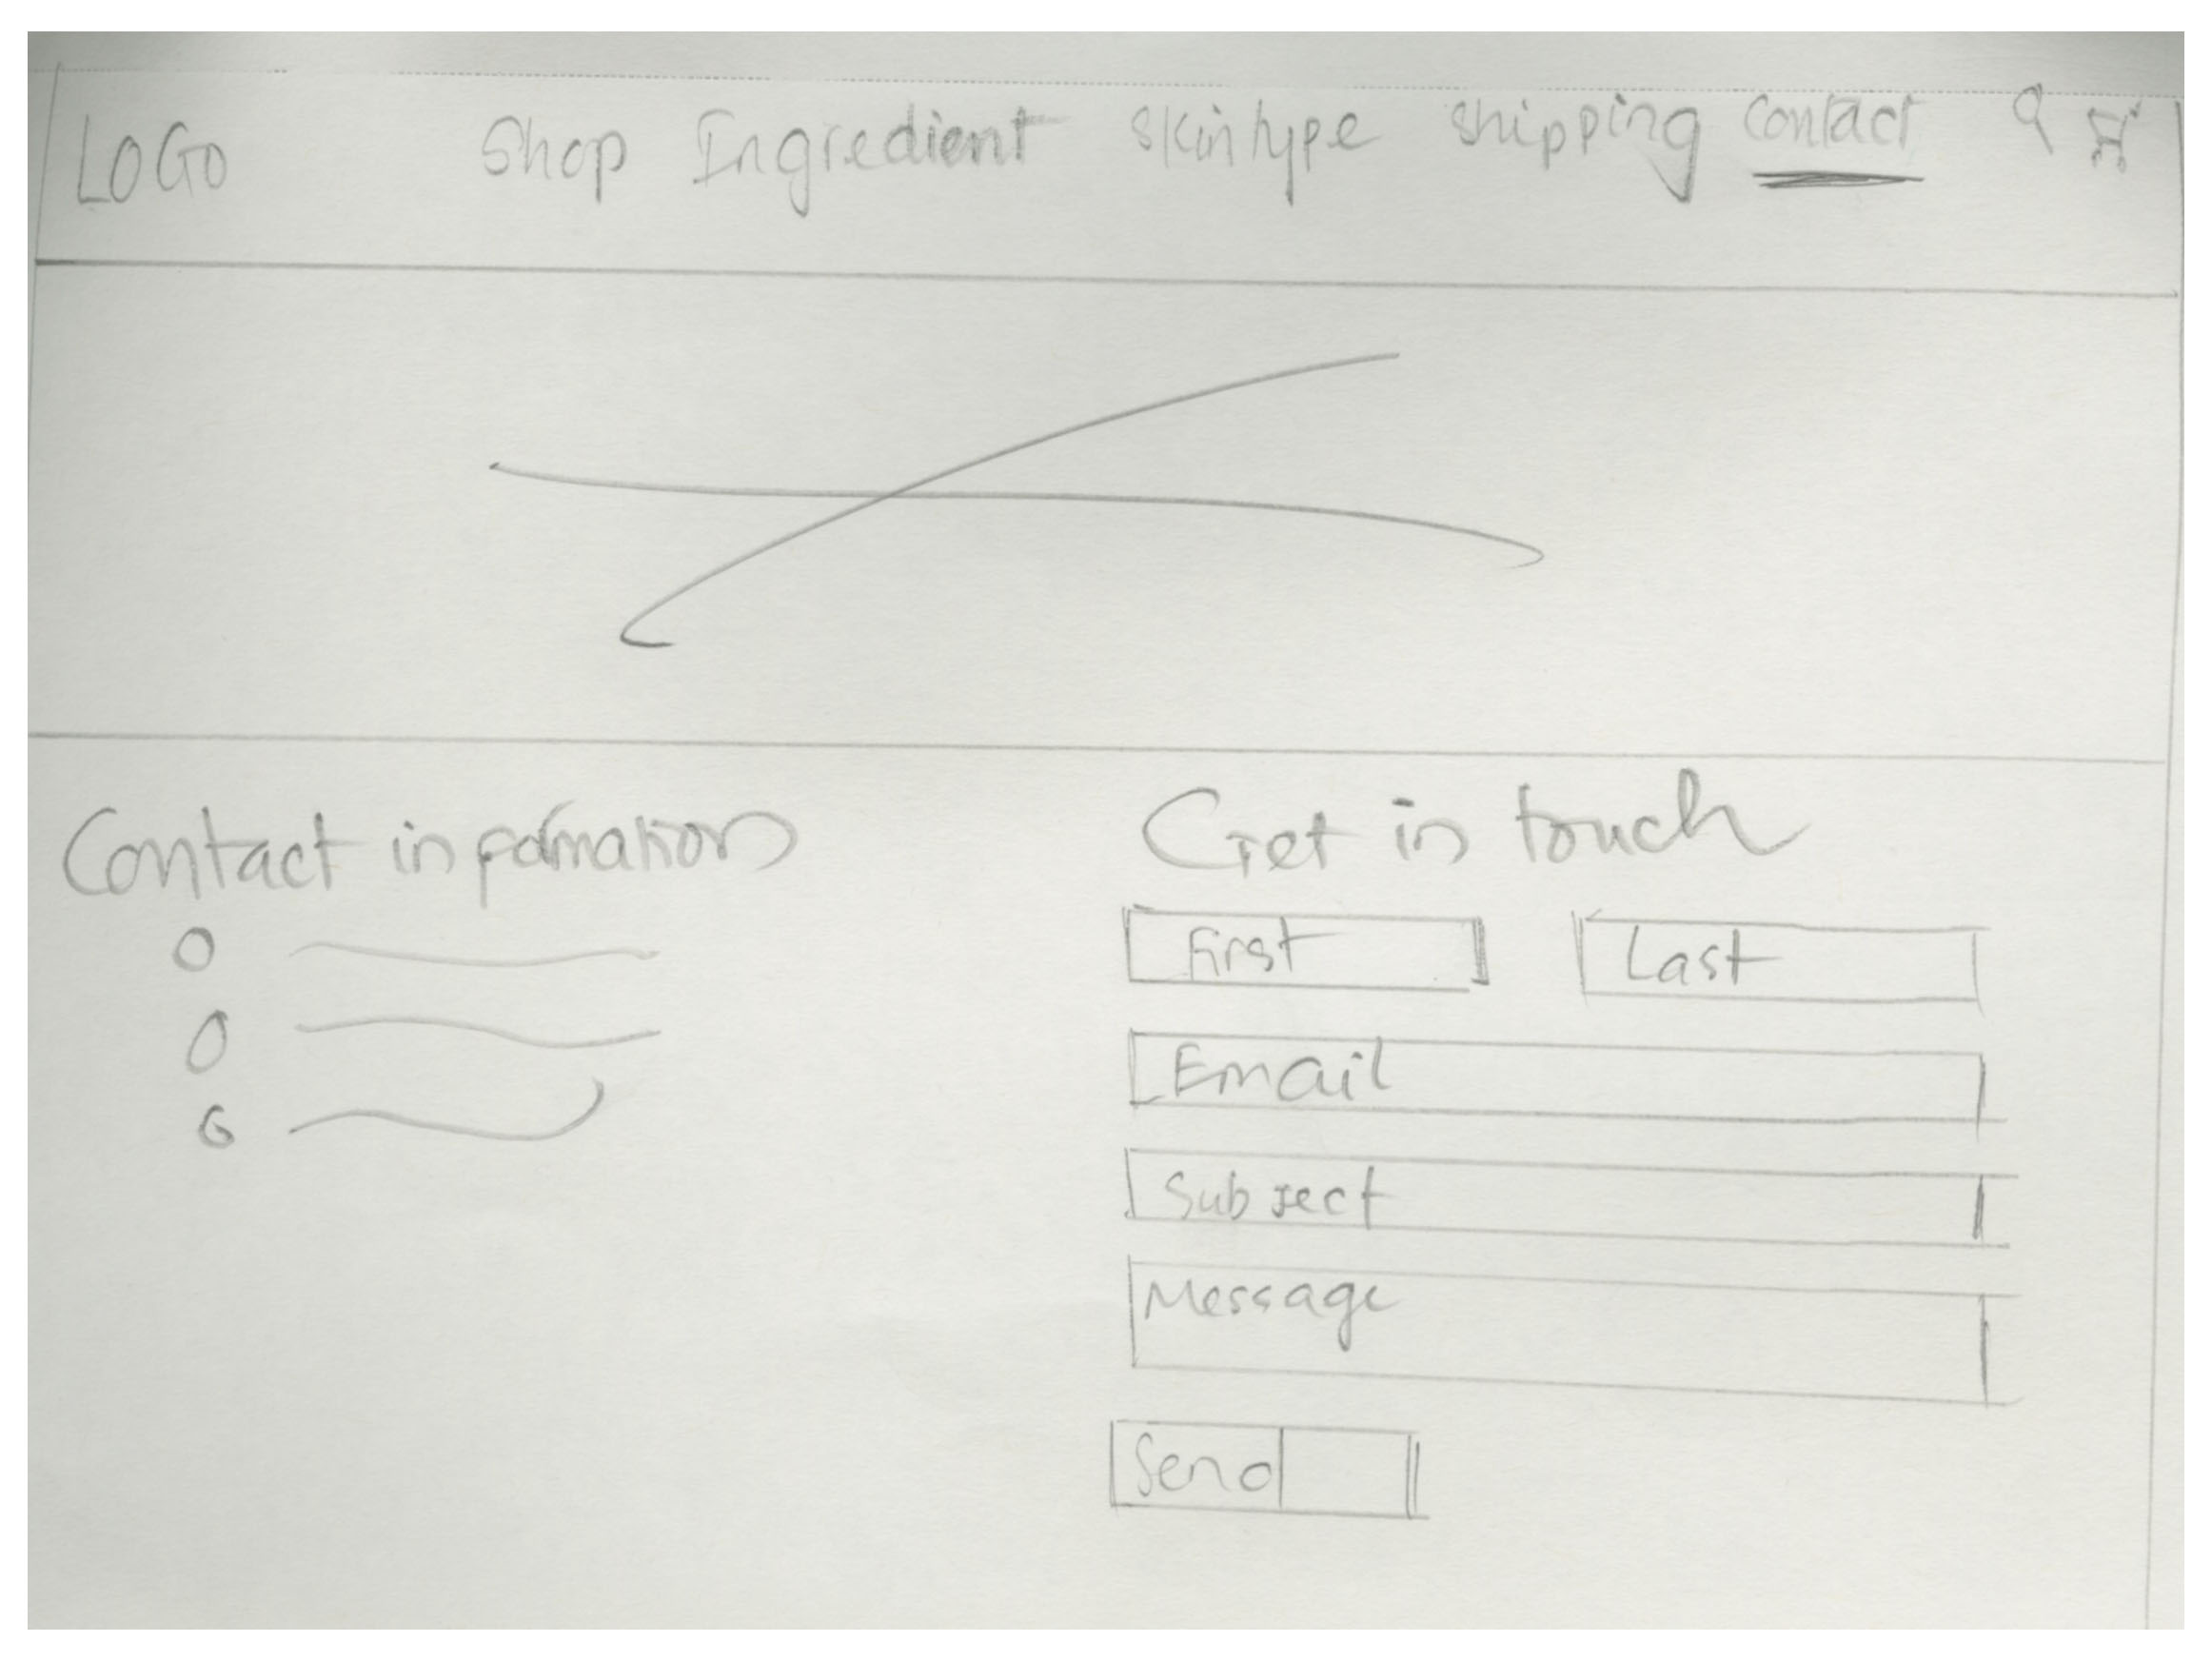 LOGO Shop Ingredient Skintype Shipping Contact
Contact information
Get in touch
First Last
Email
Subject
Message
Send